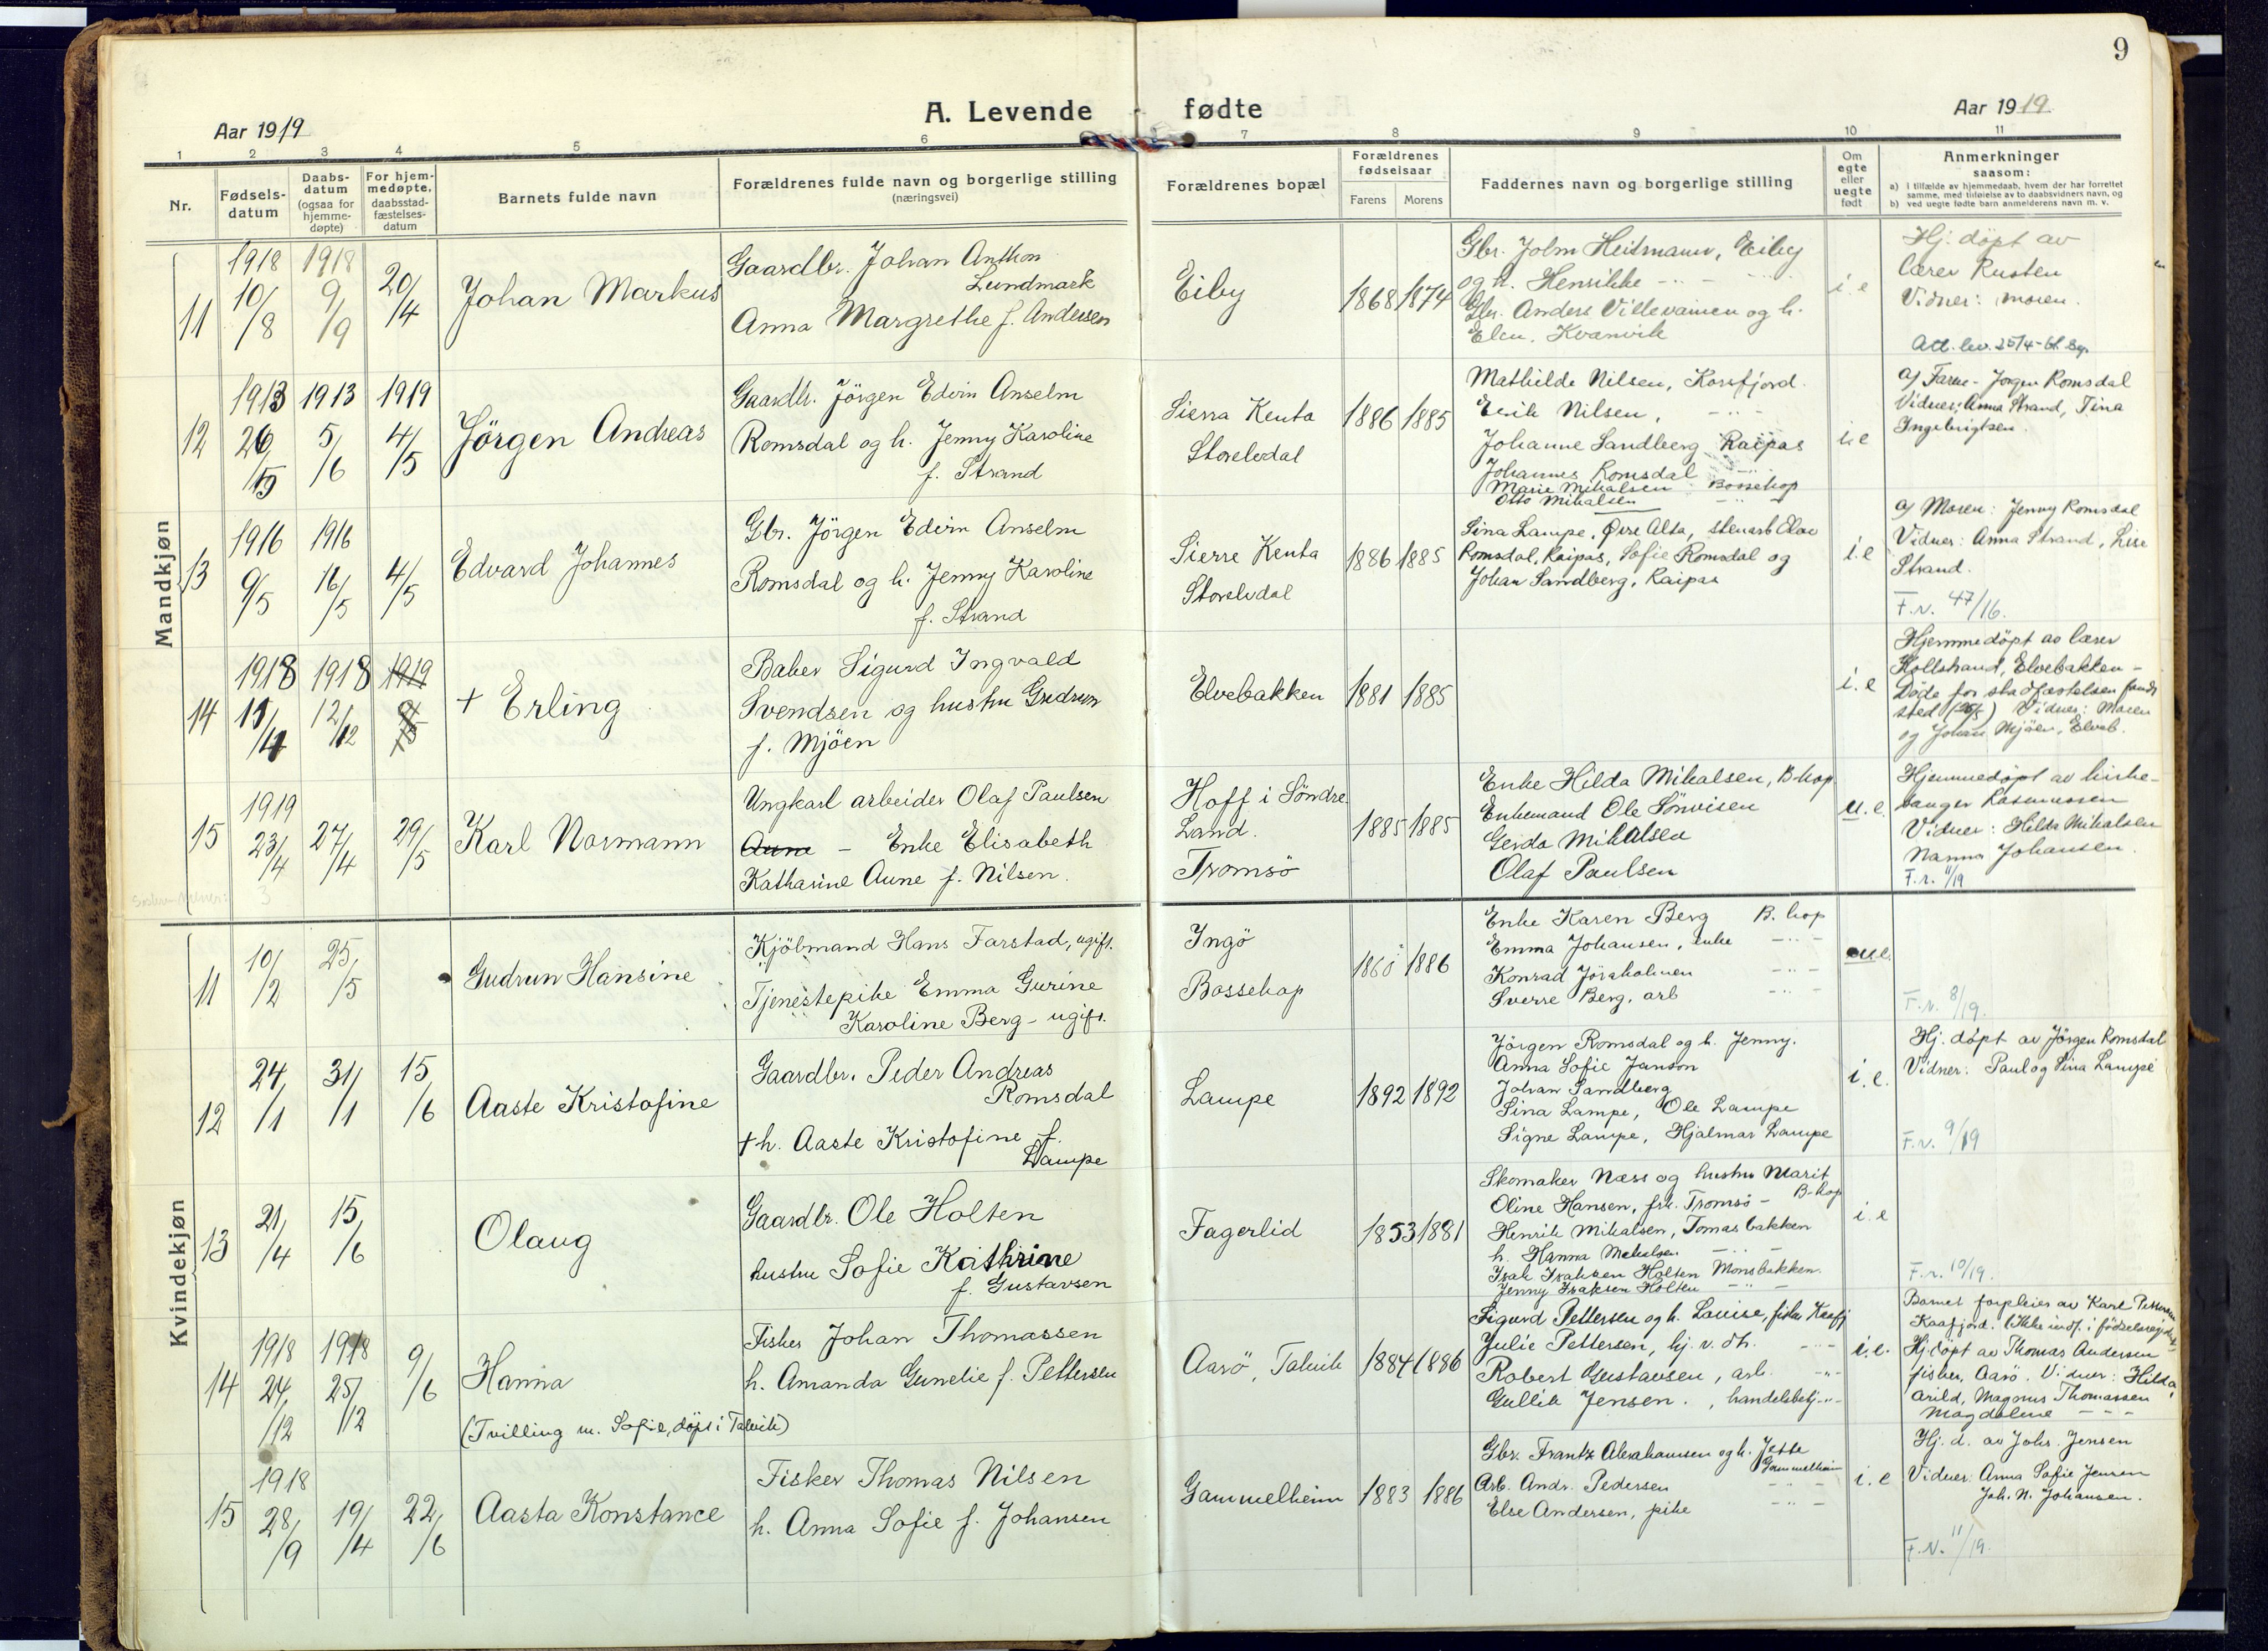 9
Aar 1919
A. Levende fødte
Aar 1919
1 2 3 4 5 6 7 8 9 10 11
Nr.
Fødsels-
datum
Daabs-
datum
(ogsaa for
hjemme-
døpte)
For hjem-
medøpte,
daabsstad-
fæstelses-
datum
Barnets fulde navn
Forældrenes fulde navn og borgerlige stilling
(næringsvei)
Forældrenes bopæl
Forældrenes
fødselsaar
Farens Morens
Faddernes navn og borgerlige stilling
Om
egte
eller
uegte
født
Anmerkninger
saasom:
a) i tilfælde av hjemmedaab, hvem der har forrettet
samme, med tilføielse av to daabsvidners navn, og
b) ved uegte fødte barn anmelderens navn m. v.
Mandkjøn
11
1918
10/8
1918
9/9
20/4
Johan Markus
Gaardbr. Johan Anthon
Lundmark
Anna Margrethe f. Andersen
Eiby
1868 1874
Gbr. John Heitmann, Eiby
og h. Henrikke - " -
Gbr. Anders Villevainen og h.
Elen, Kvanvik
i. e
Hj. döpt av
lærer Rusten
Vidner: moren.
Att. lev. 25/4
12
1913
26/5
1913
5/6
1919
4/5
Jörgen Andreas
Gaardbr. Jörgen Edvin Anselm
Romsdal og h. Jenny Karoline
f. Strand
Sierra Kenta
Storelvdal
1886 1885
Mathilde Nilsen, Korsfjord.
Erik Nilsen, - " -
Johanne Sandberg Raipas
Johannes Romsdal - " -
Marie Mikalsen Bossekop
Otto Mikalsen - " -
i. e
a) Faren - Jørgen Romsdal
Vidner: Anna Strand, Tina
Ingebrigtsen.
13
1916
9/5
1916
16/5
4/5
Edvard Johannes
Gbr. Jörgen Edvin Anselm
Romsdal og h. Jenny Karoline
f. Strand
Sierre Kenta
Storelvdal
1886 1885
Sina Lampe, Øvre Alta, stenarb Elav
Romsdal, Raipas, Sofie Romsdal og
Johan Sandberg, Raipas
i. e
a) Moren: Jenny Romsdal
Vidner: Anna Strand, Lise
Strand.
F. r. 47/16.
14
1918
11/11
1918
12/12
1919
+ Erling
Baker Sigurd Ingvald
Svendsen og hustru Gudrun
f. Mjöen
Elvebakken
1881 1885
i. e
Hjemmedöpt av lærer
Koltstrand, Elvebakken -
Døde før stadfæstelsen fandt
sted (26/5) Vidner: Moren
og Johan Mjöen, Elveb.
15
1919
23/4
27/4
29/5
Karl Normann
Ungkarl arbeider Olaf Paulsen
Aune - Enke Elisabeth
Katharine Aune f. Nilsen.
Hoff i Söndre
Land.
Tromsö
1885 1885
Enke Hilda Mikalsen, B-kop
Enkemand Ole Sönvisen
Gerda Mikalsen
Olaf Paulsen
u. e.
Hjemmedöpt av kirke-
sanger Rasmussen
Vidner: Hilda Mikalsen
Nanna Johansen.
F. r. 11/19
3
Kvindekjøn
11
10/2
25/5
Gudrun Hansine
Kjölmand Hans Farstad, ugift.
Tjenestepike Emma Gurine
Karoline Berg - ugift.
Ingö
Bossekop
1860 1886
Enke Karen Berg B. kop
Emma Johansen, enke - " -
Konrad Jöraholmen - " -
Sverre Berg, arb - " -
ue.
F. r. 8/19.
12
24/1
31/1
15/6
Aaste Kristofine
Gaardbr. Peder Andreas
Romsdal
+ h. Aaste Kristofine f.
Lampe
Lampe
1892 1892
Jörgen Romsdal og h. Jenny.
Anna Sofie Janson
Johan Sandberg
Sina Lampe, Ole Lampe
Signe Lampe, Hjalmar Lampe
i. e.
Hj. døpt av Jörgen Romsdal
Vidner: Paul og Sina Lampe
F. r. 9/19
13
21/4
15/6
Olaug
Gaardbr. Ole Holten
hustru Sofie Kathrine
f. Gustavsen
Fagerlid
1853 1881
Skomaker Næss og hustru Marit
B-kop
Oline Hansen, frk. Tromsö -
Henrik Mikalsen, Tomasbakken
h. Hanna Mikalsen - " -
Isak Isaksen Holten Monsbakken.
Jenny Isaksen Holten - " -
i. e
F. r. 10/19.
14
1918
24/12
1918
25/12
9/6
Hanna
(Tvilling m. Sofie, döpt i Talvik)
Fisker Johan Thomassen
h. Amanda Gunelie f. Pettersen
Aarö, Talvik
1884 1886
Sigurd Pettersen og h. Louise, fisker Kaafj
Julie Pettersen, hj. v. dh. - " -
Robert Gustavsen, arb. - " -
Gullik Jensen. , handelsbetj - " -
i. e.
Barnet forpleies av Karl Pettersen
Kaafjord. (Ikke indf. i fødselsregistret
Hj. döpt av Thomas Andersen
fisker, Aarö. Vidner: Hilda,
Arild, Magnus Thomassen
Magdalene - - -
15
1918
28/9
19/4
22/6
Aasta Konstance
Fisker Thomas Nilsen
h. Anna Sofie f. Johansen
Gammelheim
1883 1886
Gbr. Frantz Abrahamsen og h. Jette
Gammelheim
Arb. Andr. Pedersen - " -
Else Andersen, pike - " -
i. e
Hj. d. av Johs. Jensen
Vidner: Anna Sofie Jensen
Joh. N. Johansen.
F. N. 11/19.